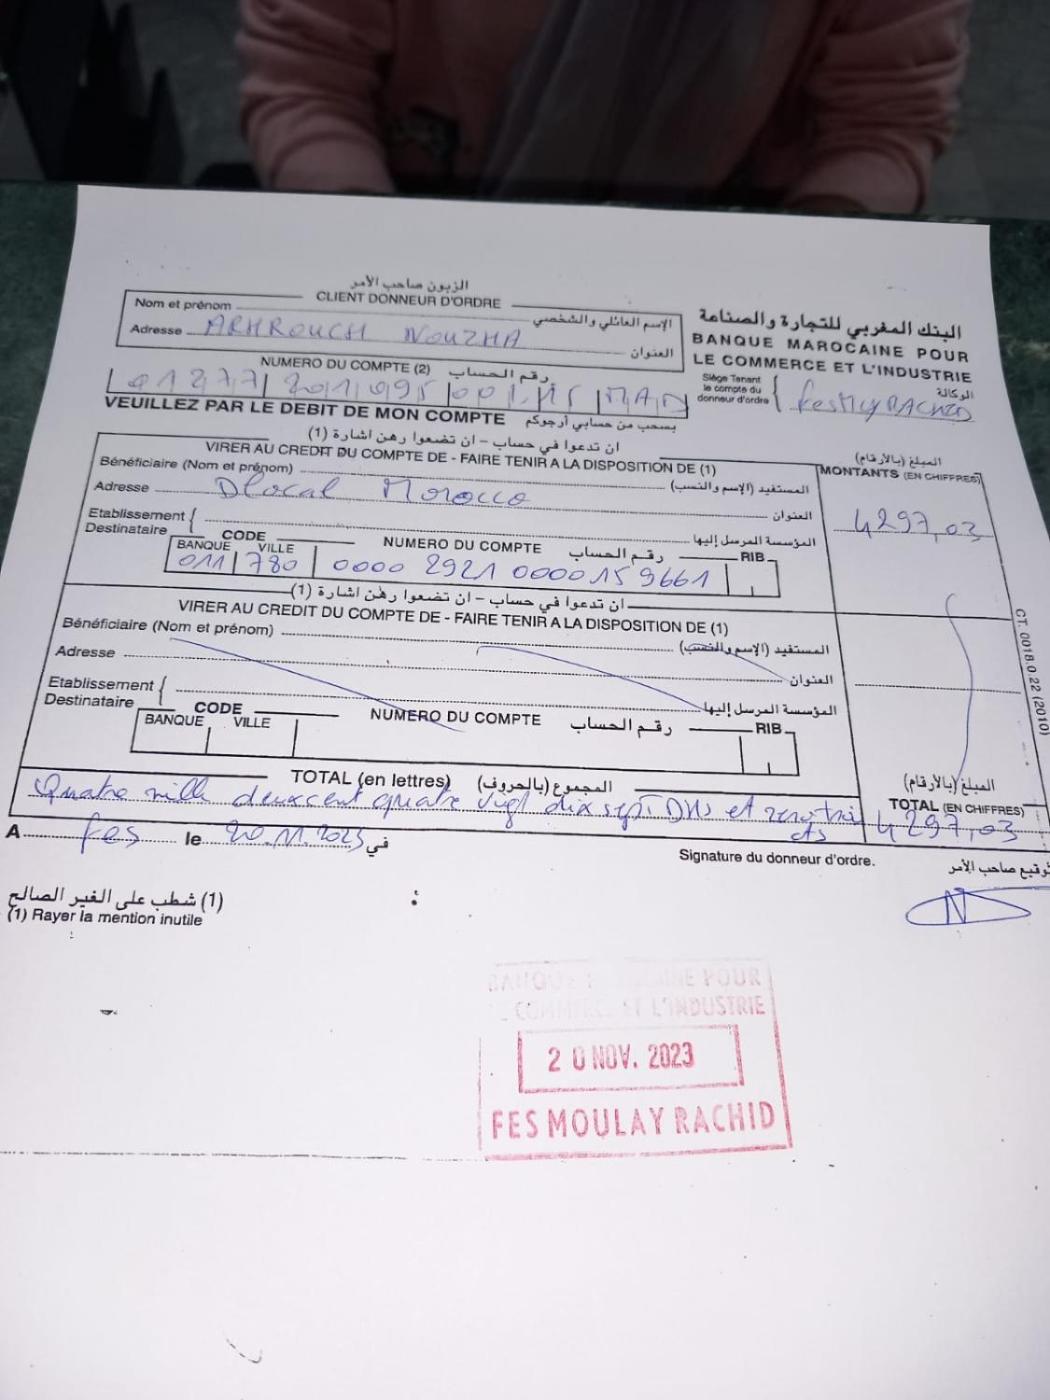 الزبون صاحب الأمر
CLIENT DONNEUR D'ORDRE
Nom et prénom الإسم العائلي والشخصي
ARHROUCH NOUZHA
Adresse العنوان
البنك المغربي للتجارة والصناعة
BANQUE MAROCAINE POUR
LE COMMERCE ET L'INDUSTRIE
NUMERO DU COMPTE (2) رقم الحساب
MAD
Siège Tenant
le compte du
donneur d'ordre
الوكالة
VEUILLEZ PAR LE DEBIT DE MON COMPTE بسحب من حسابي أرجوكم
ان تدعوا في حساب - ان تضعوا رهن اشارة (1)
VIRER AU CREDIT DU COMPTE DE - FAIRE TENIR A LA DISPOSITION DE (1)
المبلغ (بالأرقام)
MONTANTS (EN CHIFFRES)
Bénéficiaire (Nom et prénom) المستفيد (الإسم والنسب)
Dlocal Morocco
Adresse العنوان
4297,03
Etablissement
Destinataire
المؤسسة المرسل إليها
CODE
BANQUE VILLE
NUMERO DU COMPTE رقم الحساب RIB
011 780 0000 2921 0000 159661
ان تدعوا في حساب - ان تضعوا رهن اشارة (1)
VIRER AU CREDIT DU COMPTE DE - FAIRE TENIR A LA DISPOSITION DE (1)
Bénéficiaire (Nom et prénom) المستفيد (الإسم والنسب)
Adresse العنوان
Etablissement
Destinataire
المؤسسة المرسل إليها
CODE
BANQUE VILLE
NUMERO DU COMPTE رقم الحساب RIB
CT. 0018.0.22 (2010)
TOTAL (en lettres) المجموع (بالحروف)
المبلغ (بالأرقام)
TOTAL (EN CHIFFRES)
Quatre mille deux cent quatre vigt dix sept Dhs et zero trois cts
4297,03
A Fes le 20.11.2023 في
Signature du donneur d'ordre. توقيع صاحب الأمر
(1) شطب على الغير الصالح
(1) Rayer la mention inutile
BANQUE MAROCAINE POUR
LE COMMERCE ET L'INDUSTRIE
20 NOV. 2023
FES MOULAY RACHID